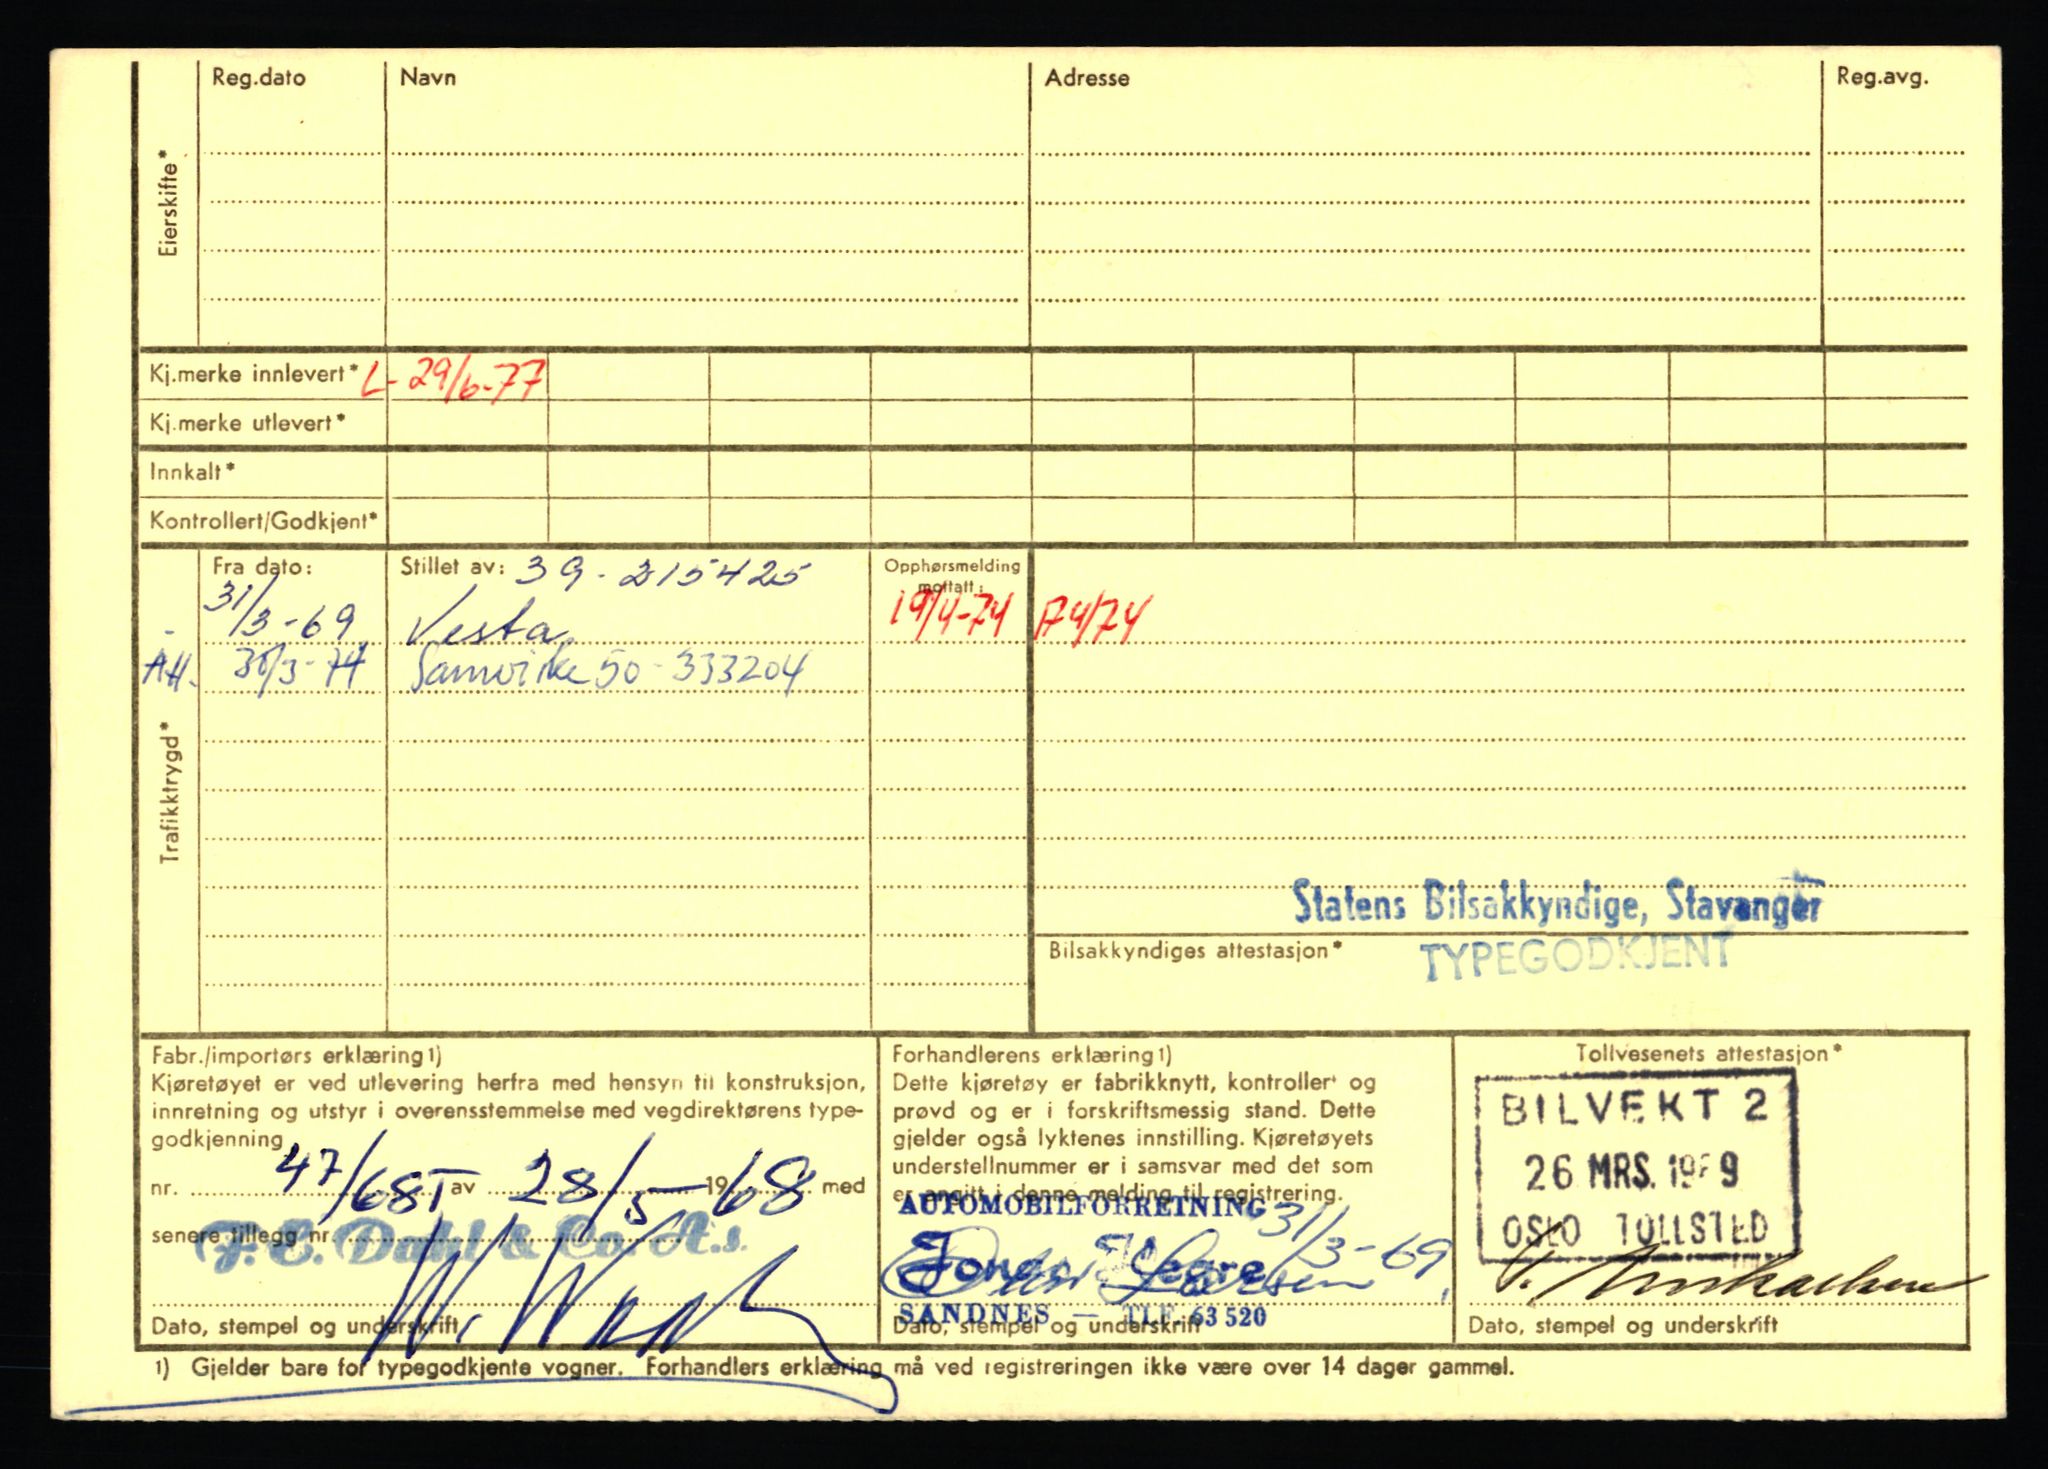 Eierskifte*
Reg.dato Navn Adresse Reg.avg.
Kj.merke innlevert* L- 29/6-77
Kj.merke utlevert*
Innkalt*
Kontrollert/Godkjent*
Trafikktrygd*
Fra dato: Stillet av: 39-215425 Opphørsmelding mottatt:
31/3-69 Vesta 19/4-74 174/74
30/3-74 Samvirke 50-333204
Statens Bilsakkyndige, Stavanger
Bilsakkyndiges attestasjon*
TYPEGODKJENT
Fabr./importørs erklæring 1)
Kjøretøyet er ved utlevering herfra med hensyn til konstruksjon,
innretning og utstyr i overensstemmelse med vegdirektørens type-
godkjenning
nr. 47/68 I av 28/5- 1968 med
senere tillegg nr.
F. E. Dahl & Co. A.s.
Dato, stempel og underskrift
Forhandlerens erklæring 1)
Dette kjøretøy er fabrikknytt, kontrollert og
prøvd og er i forskriftsmessig stand. Dette
gjelder også lyktenes innstilling. Kjøretøyets
understellnummer er i samsvar med det som
er angitt i denne melding til registrering.
AUTOMOBILFORRETNING
31/3-69
SANDNES — TLF. 63 520
Dato, stempel og underskrift
Tollvesenets attestasjon*
BILVEKT 2
26 MRS. 1969
OSLO TOLLSTED
Dato, stempel og underskrift
1) Gjelder bare for typegodkjente vogner. Forhandlers erklæring må ved registreringen ikke være over 14 dager gammel.